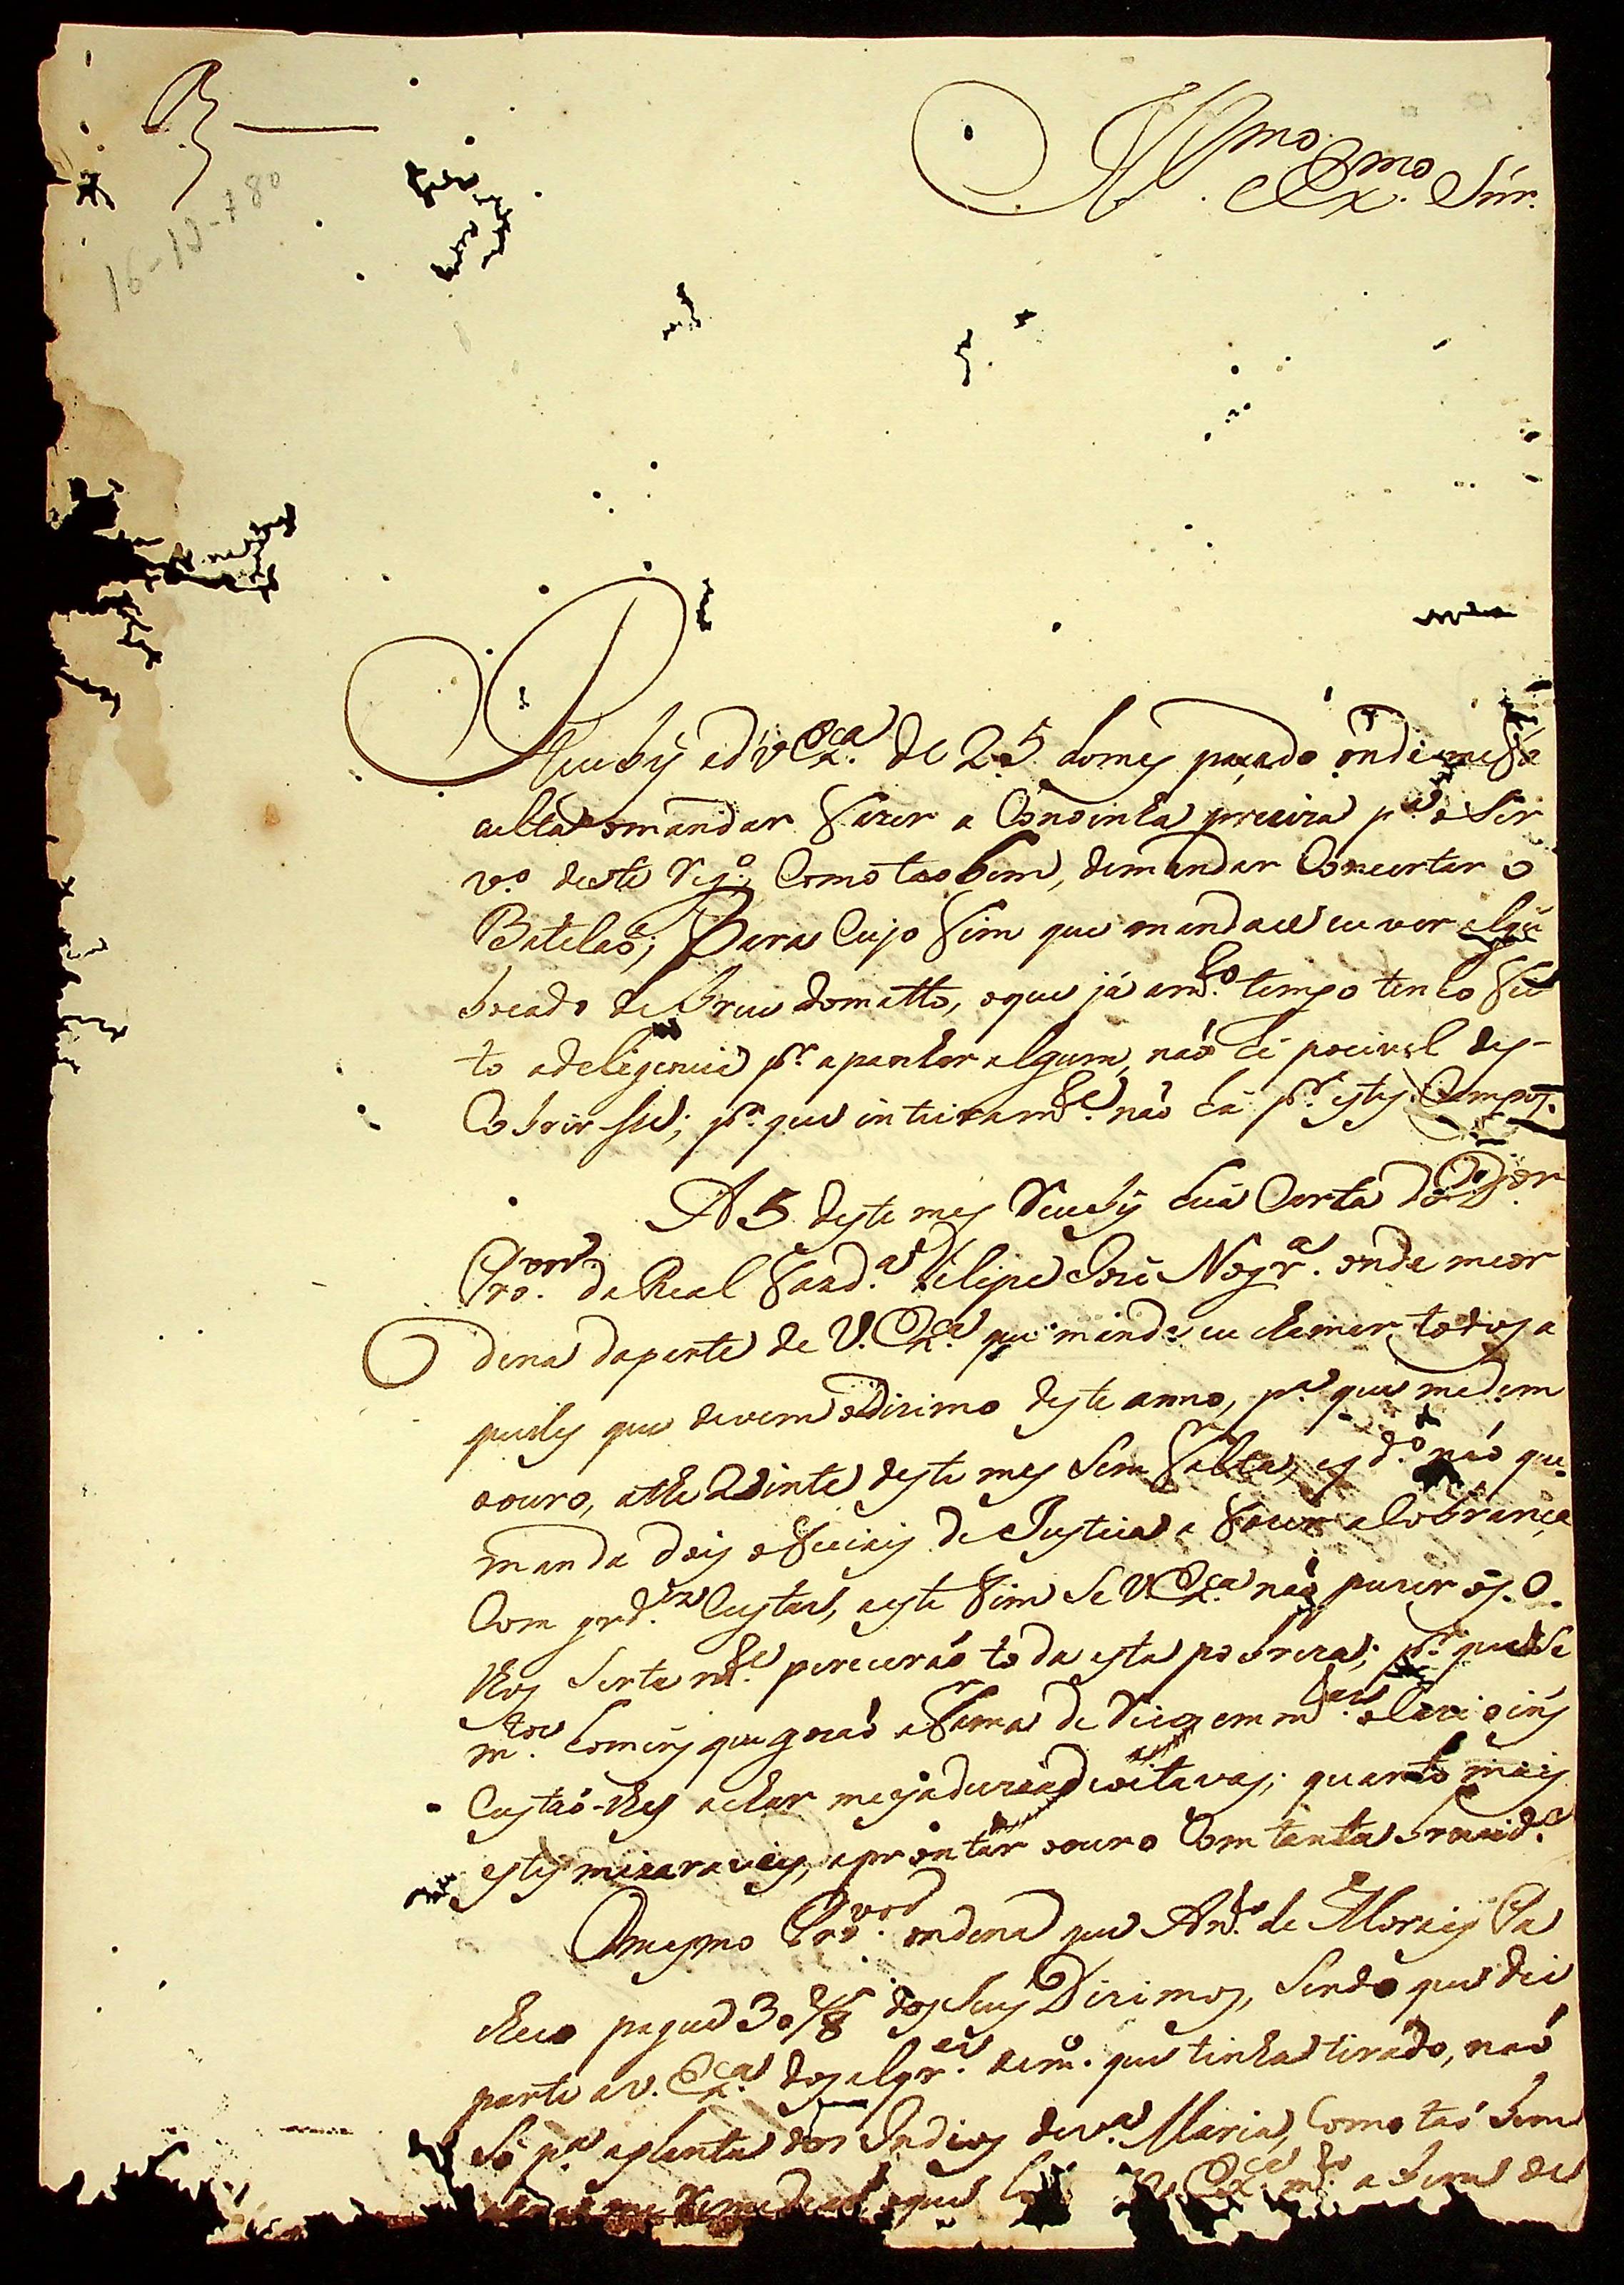 R
16-10-780
Ill.mo e Ex.mo Snr.
Recebÿ a d V Ex.ca de 25 domes paçado onde me fa
culta omandar fazer a Canoinha preciza p.a o Ser
v.o deste Reg.o, Como taobem, demandar Concertar o
Batelaõ; Para Cujo fim que mandace eu ver algũ
breado de breu domatto, oque já am.to tempo tenho fei
to adeligencia p.r apanhar algum, naõ hé pocivel des-
Cobrir sse; p.r que inteiram.te naõ há p.r estes Campos.
A 5 deste mes Recebÿ huã Carta do D.or
Pro.vor da Real Fazd.a Felipe José Nogr.a onde meor
dena daparte de V. Ex.ca que mande eu chamar todos a
queles que devem o Dizimo deste anno, p.a que medem
oouro, athe Vinte deste mes Sem falta, e q d.o naõ que
manda dois oficiais de Justiça a fazer aCobrança
Com grd.es Custas, aeste fim Se V Ex.ca naõ puzer os O.
lhos Serta m.te pereceráõ toda esta pobreza; p.r que Se
m.tos homens que gozaõ afama de Ricos em m.tas oCaziois
Custaõ-lhes achar meyaduzia doitavas; quanto mais
estes mizaraveis, aprontar oouro Com tanta brevid.e
Omesmo Pro.vor ordena que Ant.o de Moraes Pa
checo pague 30/8 dos Seus Dizimos, Sendo que dei
parte a V. Ex.ca dos alqr.es de m.o que tinha tirado, naõ
Só p.a aplanta dos Indios de V.a Maria, Como taõ bem
me Remediar oque V. Ex.ca m.to a bem de